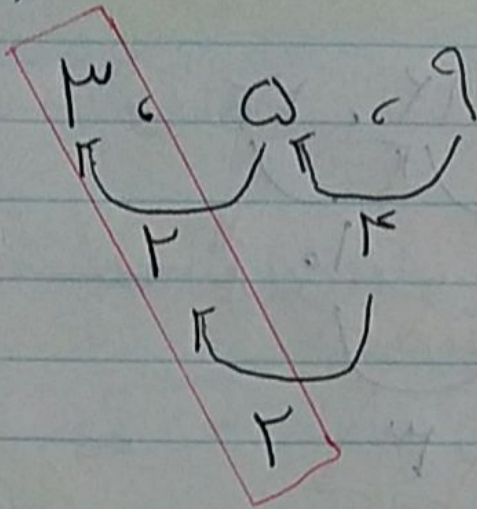 ۳ ، ۵ ، ۹
۲ ۴
۲